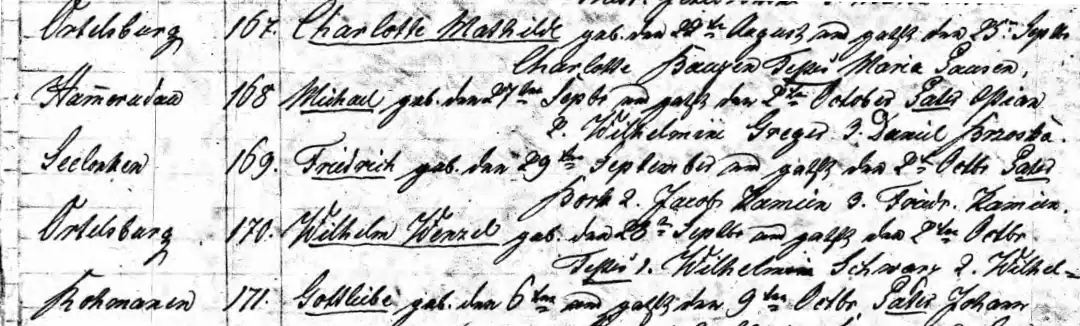 Ortelsburg 167. Charlotte Mathilde geb. den 22ten August und getft den 25ten Septbr
Charlotte Testes Maria
Hamerudau 168 Michael geb. den 27ten Septbr und getft den 2ten October Pater
2. Wilhelmine Greger 3. Daniel
169. Friedrich geb. den 29ten September und getft den 2t Octbr Pater
2. Jacob Kamien 3. Friedr. Kamien.
Ortelsburg 170. Wilhelm Wenzel geb. den 28ten Septbr und getft den 2ten Octbr
Testes 1. Wilhelmine Schwarz 2. Wilhel=
Kohmanen 171. Gottliebe geb. den 6ten und getft den 9ten Octbr Pater Johann